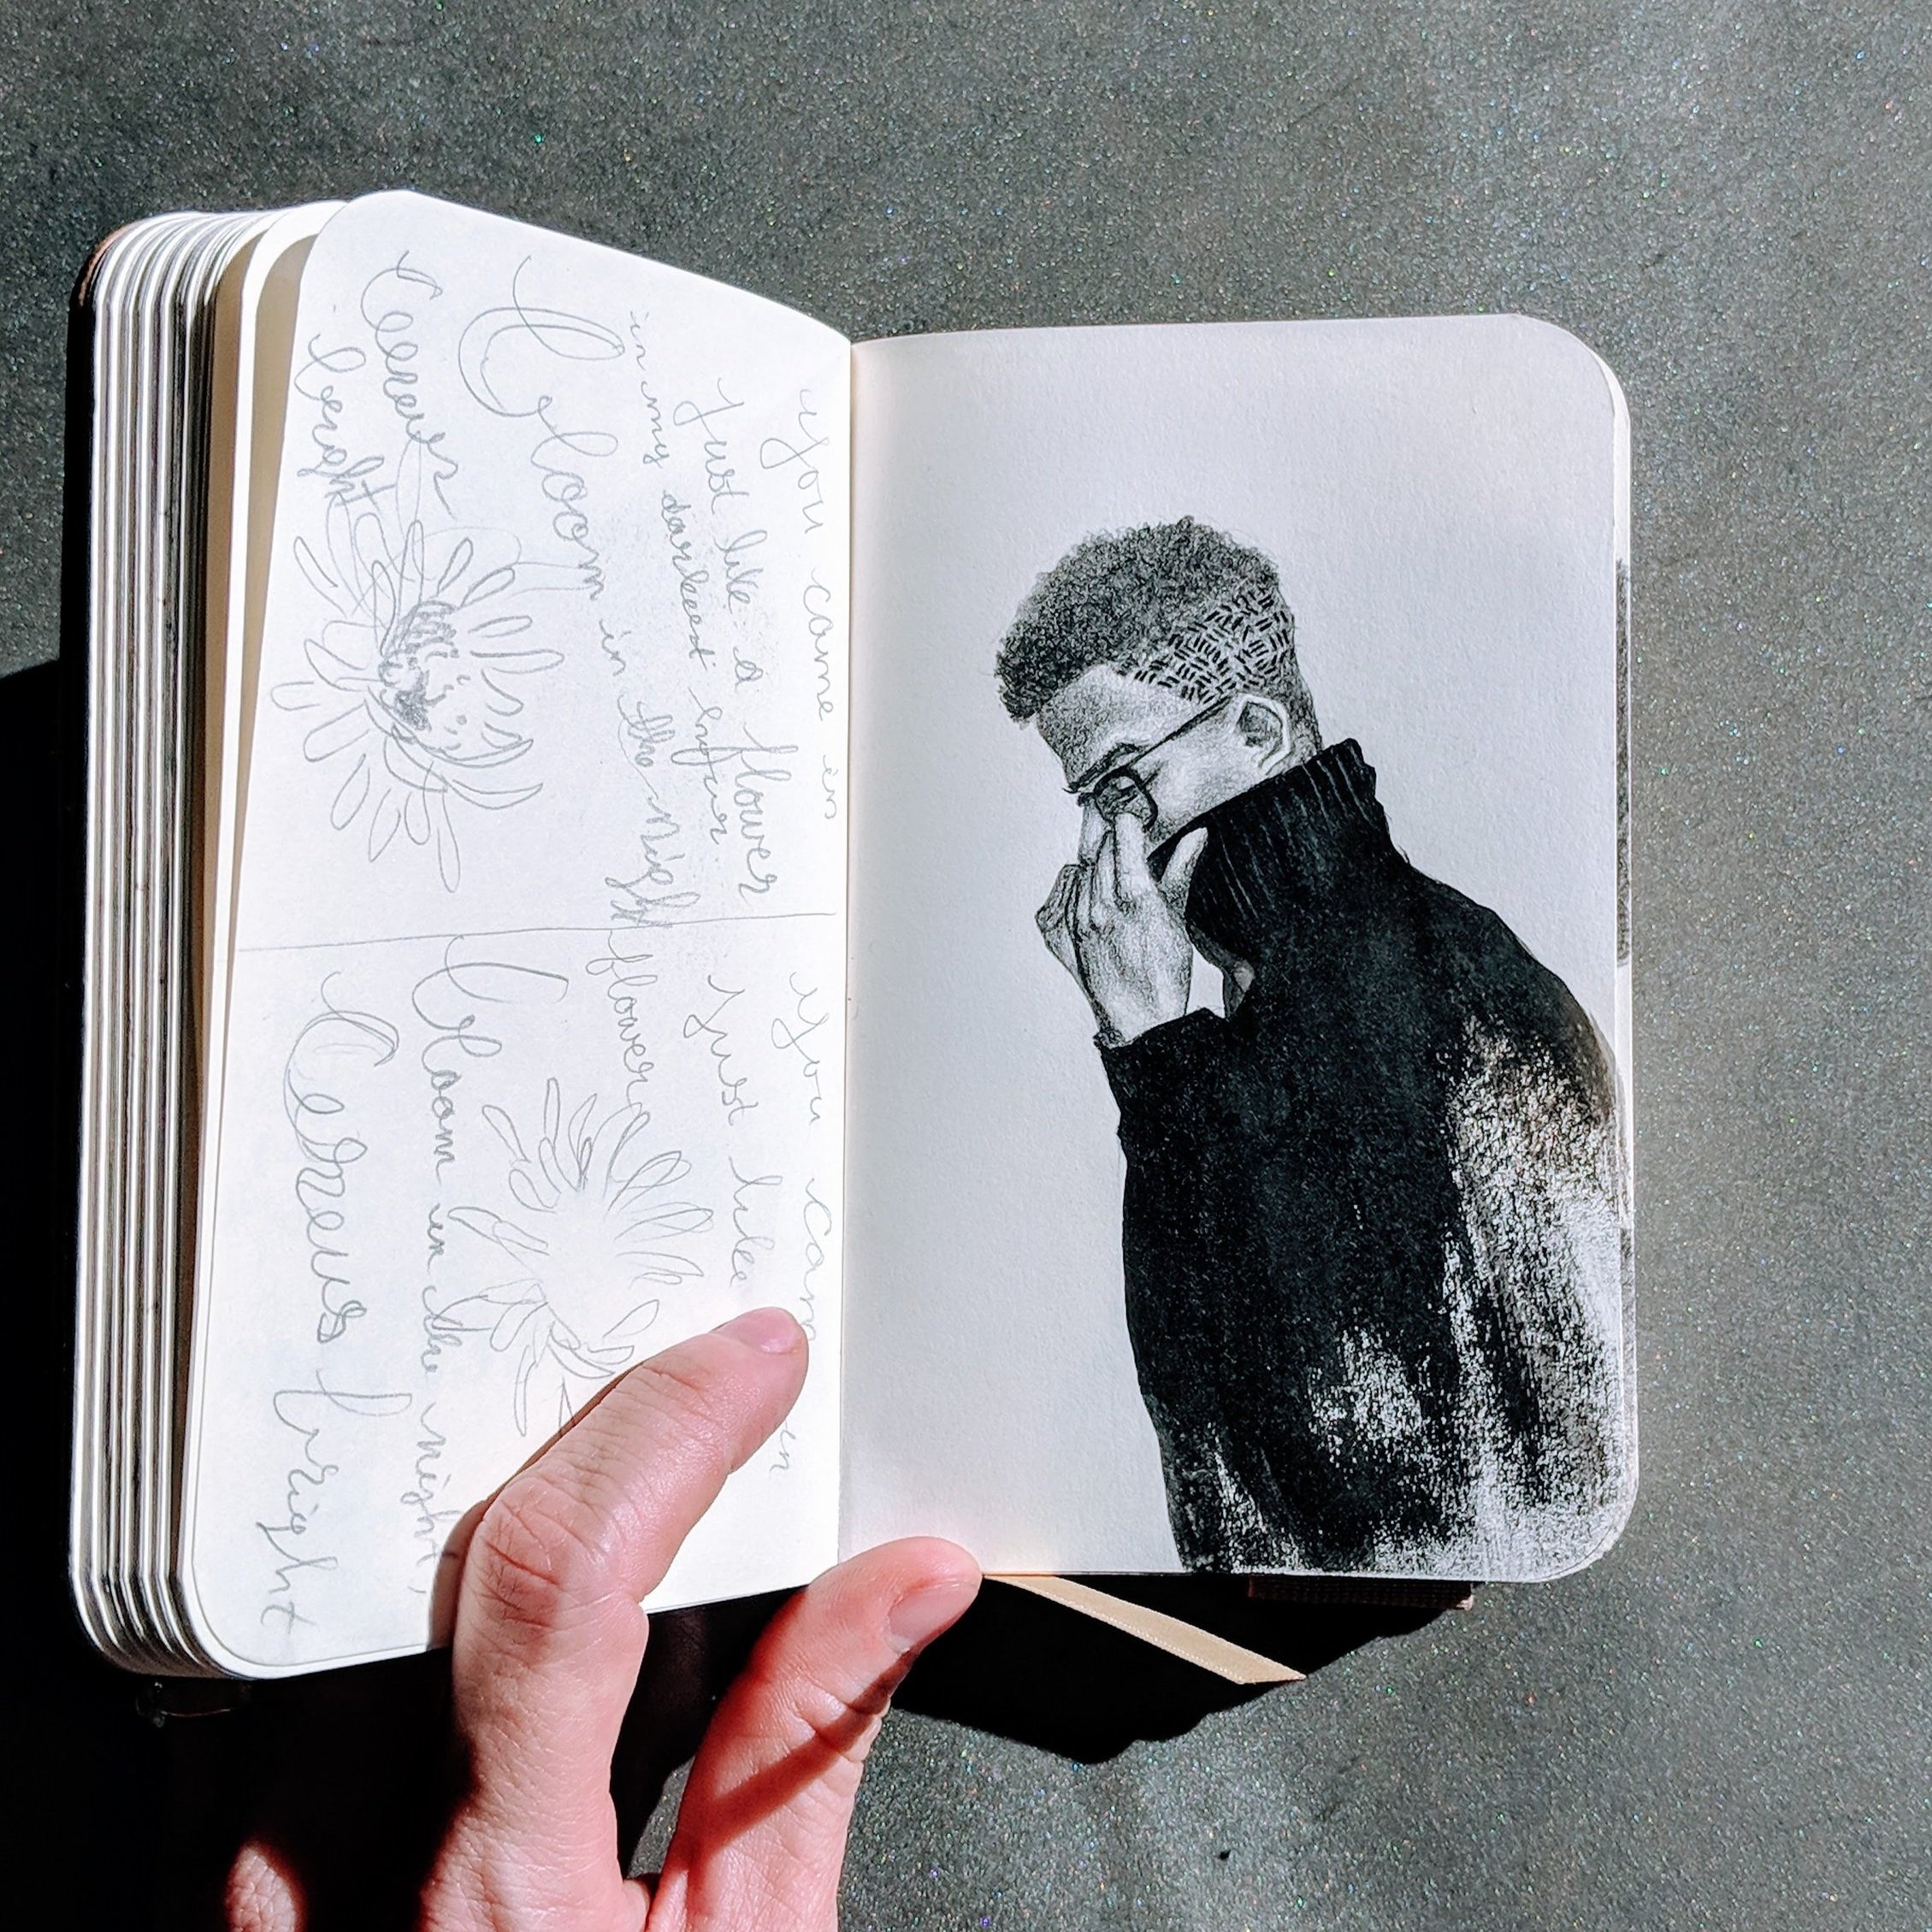 you came in
Just like a flower
in my darkest hour.
Bloom in the night flower
Cereus
bright
You came in
Just like
Bloom in the night,
Cereus bright